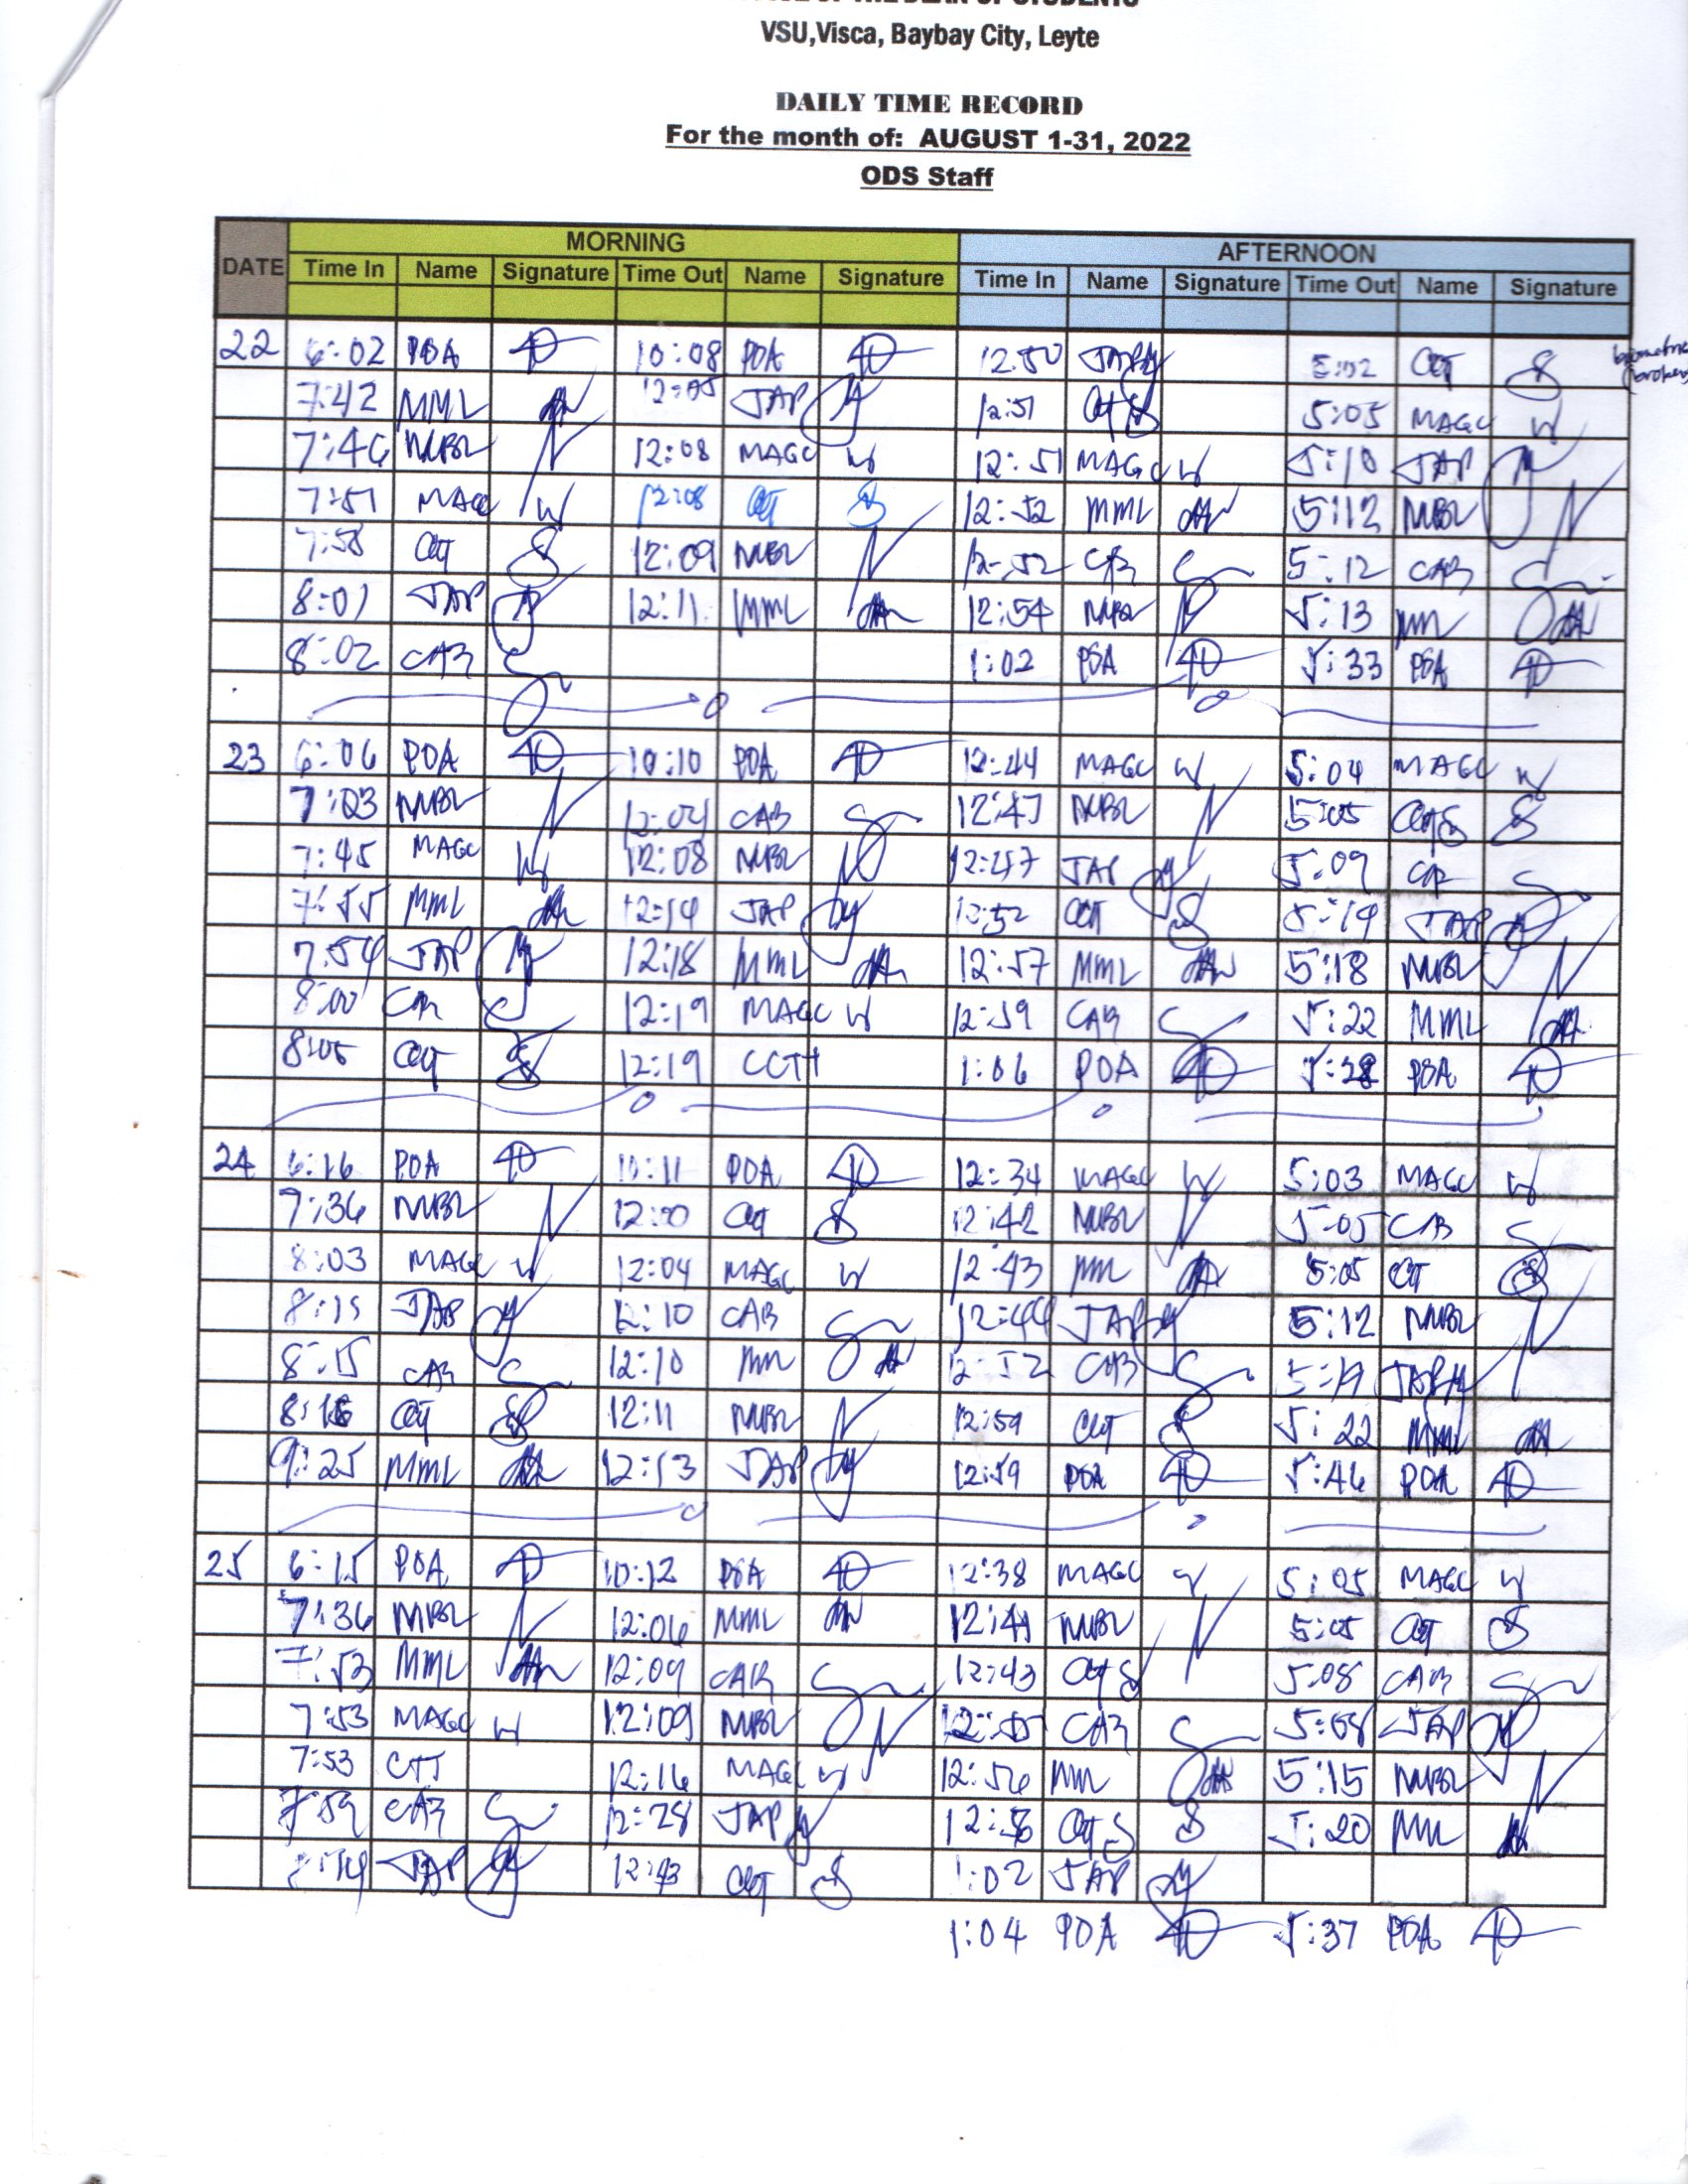 VSU,Visca, Baybay City, Leyte
DAILY TIME RECORD
For the month of: AUGUST 1-31, 2022
ODS Staff
DATE MORNING AFTERNOON
Time In Name Signature Time Out Name Signature Time In Name Signature Time Out Name Signature
22 6:02 POA 10:08 POA 12:50 JAP 5:02 CCT
7:42 MML 12:05 JAP 12:51 CCT 5:05 MAGC
7:46 NMBL 12:08 MAGC 12:51 MAGC 5:10 JAP
7:51 MAGC 12:08 CCT 12:52 MML 5:12 NMBL
7:58 CCT 12:09 NMBL 12:52 CAB 5:12 CAB
8:01 JAP 12:11 MML 12:54 NMBL 5:13 MML
8:02 CAB 1:02 POA 5:33 POA
23 6:06 POA 10:10 POA 12:44 MAGC 5:04 MAGC
7:23 NMBL CAB 12:47 NMBL 5:05 CCT
7:45 MAGC 12:08 NMBL 12:47 JAP 5:09 CAB
7:55 MML 12:14 JAP 12:52 CCT 5:14 JAP
7:54 JAP 12:18 MML 12:57 MML 5:18 NMBL
8:00 CAB 12:19 MAGC 12:59 CAB 5:22 MML
8:05 CCT 12:19 CCTT 1:06 POA 5:28 POA
24 6:16 POA 10:11 POA 12:34 MAGC 5:03 MAGC
7:36 NMBL 12:00 CCT 12:42 NMBL 5:05 CAB
8:03 MAGC 12:04 MAGC 12:43 MML 5:05 CCT
8:15 JAP 12:10 CAB 12:44 JAP 5:12 NMBL
8:15 CAB 12:10 MML 12:52 CAB 5:19 JAP
CCT 12:11 NMBL 12:59 CCT 5:22 MML
9:25 MML 12:13 JAP 12:59 POA 5:46 POA
25 6:15 POA 10:12 POA 12:38 MAGC 5:05 MAGC
7:36 NMBL 12:06 MML 12:41 NMBL 5:05 CCT
7:53 MML 12:09 CAB 12:43 CCT 5:08 CAB
7:53 MAGC 12:09 NMBL CAB 5:08 JAP
7:53 CTT 12:16 MAGC 12:56 MML 5:15 NMBL
7:59 CAB 12:28 JAP CCT 5:20 MML
JAP 12:43 CCT 1:02 JAP
1:04 POA 5:37 POA